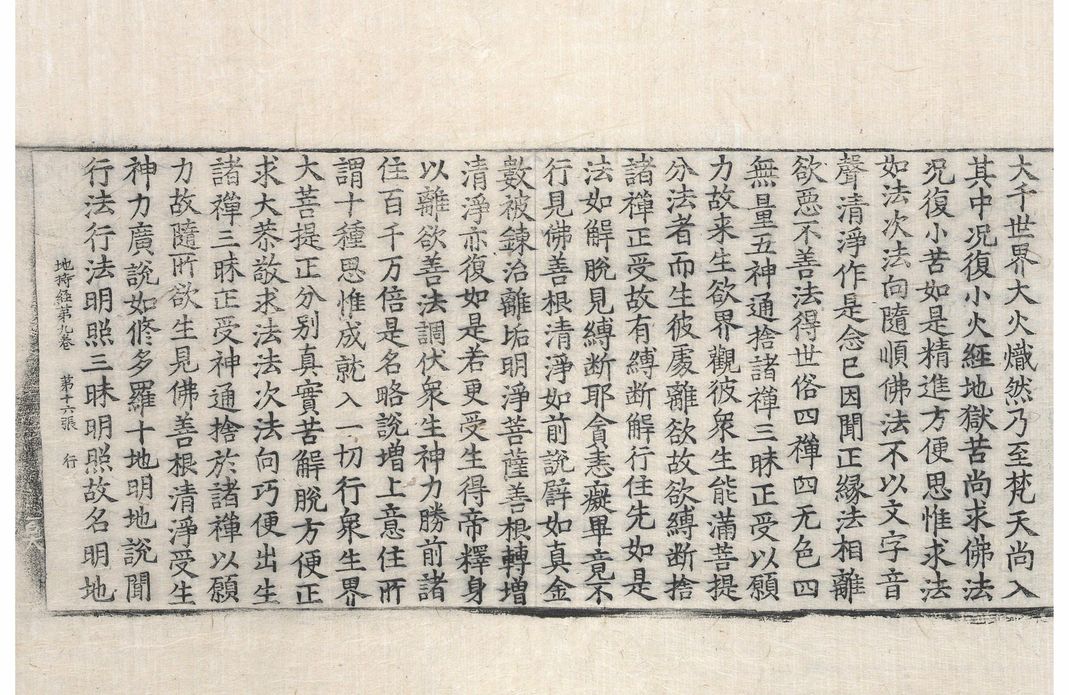 大千世界大火熾然乃至梵天尚入
其中况復小火経地獄苦尚求佛法
况復小苦如是精進方便思惟求法
如法次法向隨順佛法不以文字音
聲清淨作是念已因聞正縁法相離
欲惡不善法得世俗四禪四无色四
無量五神通捨諸禪三昧正受以願
力故来生欲界觀彼衆生能滿菩提
分法者而生彼處離欲故欲縛斷捨
諸禪正受故有縛斷解行住先如是
法如解脫見縛斷耶貪恚癡畢竟不
行見佛善根清淨如前說譬如真金
數被鍊治離垢明淨菩薩善根轉增
清淨亦復如是若更受生得帝釋身
以離欲善法調伏衆生神力勝前諸
住百千万倍是名略說增上意住所
謂十種思惟成就入一切行衆生界
大菩提正分别真實苦解脫方便正
求大恭敬求法法次法向巧便出生
諸禪三昧正受神通捨於諸禪以願
力故隨所欲生見佛善根清淨受生
神力廣說如修多羅十地明地說聞
行法行法明照三昧明照故名明地
地持経第九卷 第十六張 行